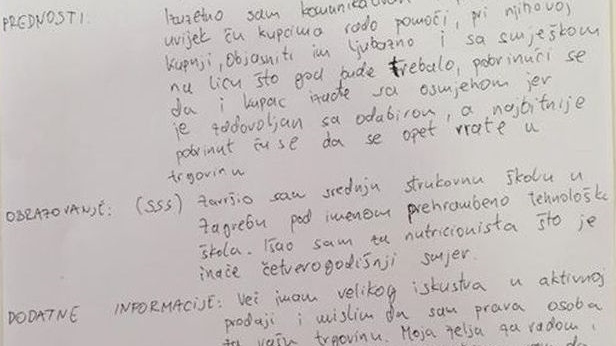 PREDNOSTI: Izuzetno sam komunikativan
uvijek ću kupcima rado pomoći, pri njihovoj
kupnji, objasniti im ljubazno i sa smješkom
na licu što god bude trebalo, pobrinući se
da i kupac izađe sa osmjehom jer
je zadovoljan sa odabirom, a najbitnije
pobrinut ću se da se opet vrate u
trgovinu
OBRAZOVANJE: (SSS) Završio sam srednju strukovnu školu u
Zagrebu pod imenom prehrambeno tehnološka
škola. Išao sam za nutricionista što je
inače četverogodišnji smjer.
DODATNE INFORMACIJE: Već imam velikog iskustva u aktivnoj
prodaji i mislim da sam prava osoba
za vašu trgovinu. Moja želja za radom i
da